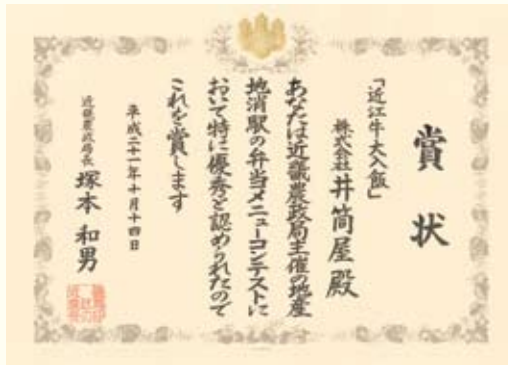 賞状
「近江牛大入飯」
株式会社井筒屋殿
あなたは近畿農政局主催の地産
地消駅の弁当メニューコンテストに
おいて特に優秀と認められたので
これを賞します
平成二十一年十月十四日
近畿農政局長 塚本和男